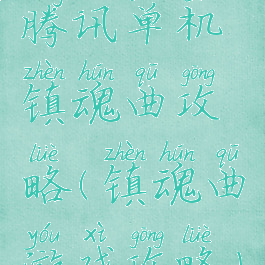 腾讯单机
zhèn hún qū gōng
镇魂曲攻
lüè zhèn hún qū
略(镇魂曲
yóu xì gōng lüè
游戏攻略)